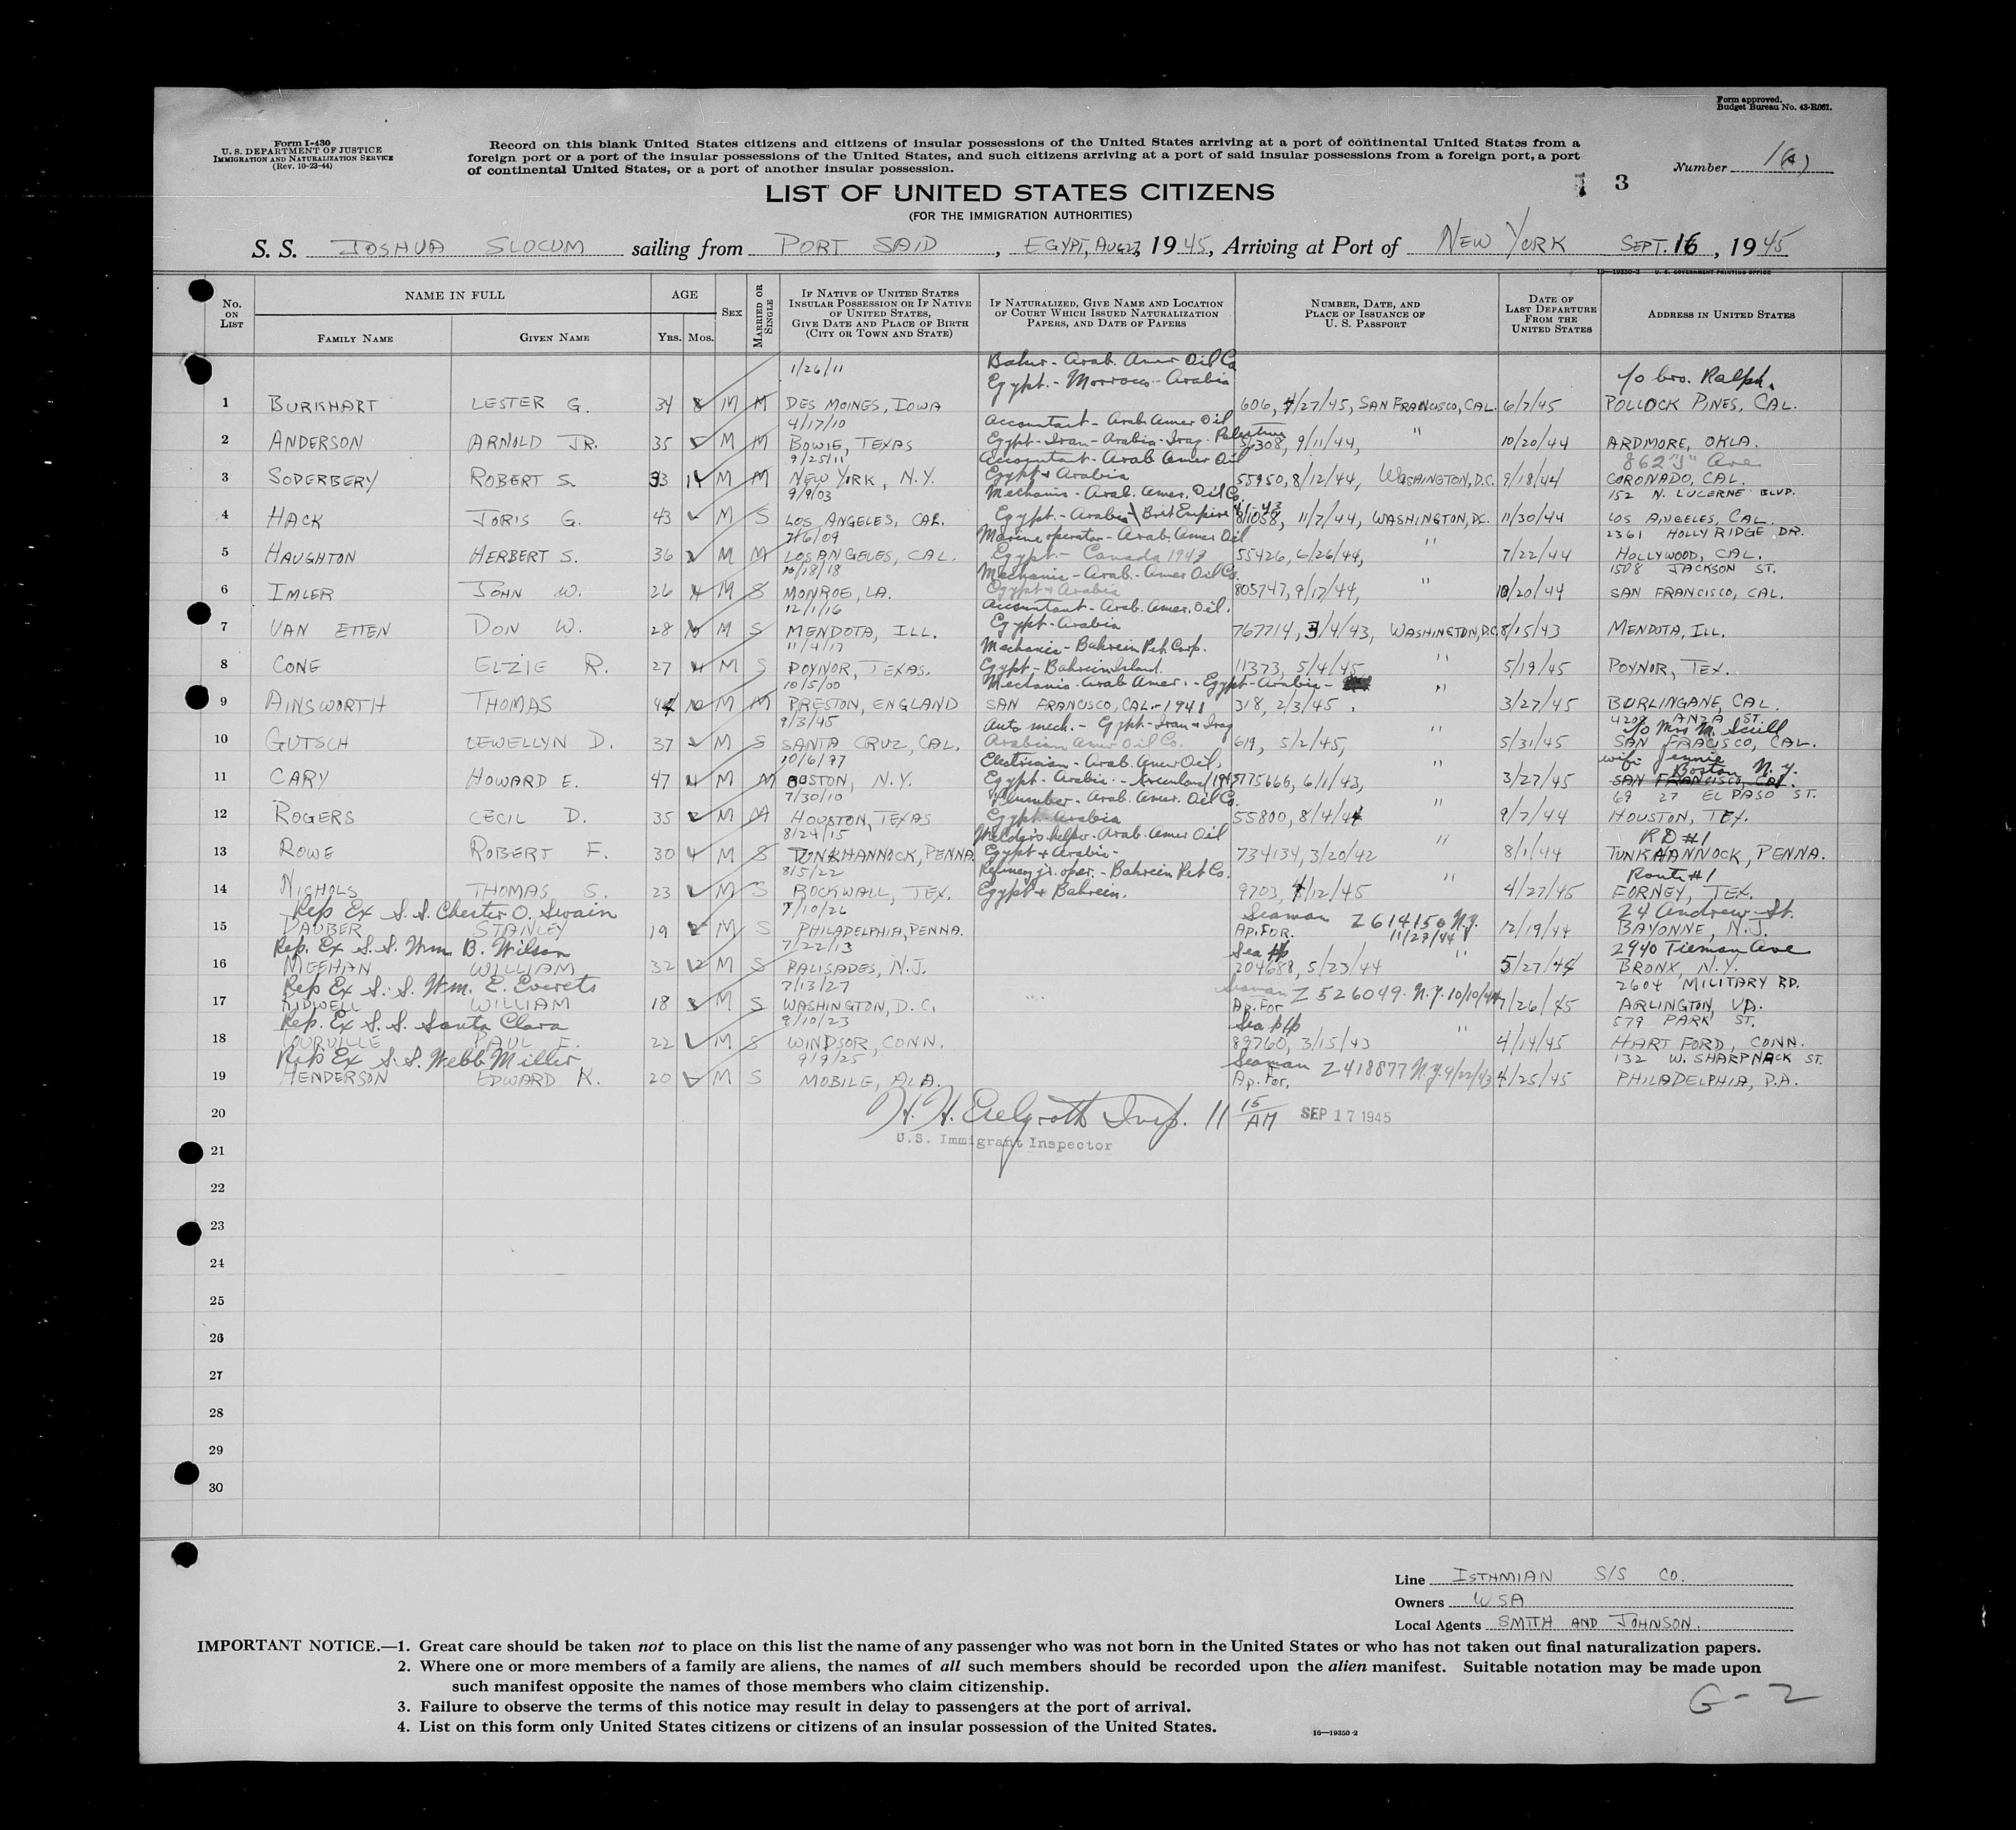 Form approved.
Budget Bureau No. 43-R061.
Form I-430
U. S. DEPARTMENT OF JUSTICE
IMMIGRATION AND NATURALIZATION SERVICE
(Rev. 10-23-44)
Record on this blank United States citizens and citizens of insular possessions of the United States arriving at a port of continental United States from a
foreign port or a port of the insular possessions of the United States, and such citizens arriving at a port of said insular possessions from a foreign port, a port
of continental United States, or a port of another insular possession.
Number 1(A)
3
LIST OF UNITED STATES CITIZENS
(FOR THE IMMIGRATION AUTHORITIES)
S. S. JOSHUA SLOCUM sailing from PORT SAID, EGYPT, AUG 27, 1945, Arriving at Port of NEW YORK SEPT. 16, 1945
16—19350-2 U. S. GOVERNMENT PRINTING OFFICE
No. ON LIST
NAME IN FULL
FAMILY NAME
GIVEN NAME
AGE
YRS. MOS.
SEX
MARRIED OR SINGLE
IF NATIVE OF UNITED STATES INSULAR POSSESSION OR IF NATIVE OF UNITED STATES, GIVE DATE AND PLACE OF BIRTH (CITY OR TOWN AND STATE)
IF NATURALIZED, GIVE NAME AND LOCATION OF COURT WHICH ISSUED NATURALIZATION PAPERS, AND DATE OF PAPERS
NUMBER, DATE, AND PLACE OF ISSUANCE OF U. S. PASSPORT
DATE OF LAST DEPARTURE FROM THE UNITED STATES
ADDRESS IN UNITED STATES
1/26/11 Baker - Arab. Amer Oil Co
Egypt. - Morroco - Arabia c/o bro. Ralph.
1 BURKHART LESTER G. 34 8 M M DES MOINES, IOWA 606, 4/27/45, SAN FRANCISCO, CAL. 6/7/45 POLLOCK PINES, CAL.
4/17/10 Accountant - Arab Amer Oil
2 ANDERSON ARNOLD JR. 35 M M BOWIE, TEXAS Egypt - Iran - Arabia - Iraq - Palestine 56308, 9/11/44, " 10/20/44 ARDMORE, OKLA.
9/25/11 Accountant - Arab Amer Oil 862 "J" Ave
3 SODERBERY ROBERT S. 33 11 M M NEW YORK, N.Y. Egypt + Arabia 55950, 8/12/44, WASHINGTON, D.C. 9/18/44 CORONADO, CAL.
9/9/03 Mechanic - Arab. Amer. Oil Co. 152 N. LUCERNE BLVD.
4 HACK JORIS G. 43 M S LOS ANGELES, CAL. Egypt. - Arabia Brit Empire 41-43 81058, 11/7/44, WASHINGTON, DC. 11/30/44 LOS ANGELES, CAL.
7/6/09 Marine operator - Arab. Amer Oil 2361 HOLLY RIDGE DR.
5 HAUGHTON HERBERT S. 36 2 M M LOS ANGELES, CAL. Egypt. - Canada 1943 55426, 6/26/44, " 7/22/44 HOLLYWOOD, CAL.
10/18/18 Mechanic - Arab. - Amer Oil Co. 1508 JACKSON ST.
6 IMLER JOHN W. 26 M S MONROE, LA. Egypt + Arabia 805747, 9/17/44, " 10/20/44 SAN FRANCISCO, CAL.
12/1/16 Accountant - Arab. Amer. Oil.
7 VAN ETTEN DON W. 28 M S MENDOTA, ILL. Egypt - Arabia 767714, 3/4/43, WASHINGTON, D.C. 8/15/43 MENDOTA, ILL.
11/4/17 Mechanic - Bahrein Pet Corp.
8 CONE ELZIE R. 27 M S POYNOR, TEXAS. Egypt - Bahrein Island. 11373, 5/4/45 " 5/19/45 POYNOR, TEX.
10/5/00 Mechanic - Arab Amer. - Egypt - Arabia -
9 AINSWORTH THOMAS 44 10 M M PRESTON, ENGLAND SAN FRANCISCO, CAL. - 1941 318, 2/3/45 " 3/27/45 BURLINGANE, CAL.
9/3/45 Auto mech. - Egypt - Iran + Iraq 4208 ANZA ST. c/o Mrs M. Scull
10 GUTSCH LEWELLYN D. 37 M S SANTA CRUZ, CAL. Arabian Amer Oil Co. 619, 5/2/45, 5/31/45 SAN FRACISCO, CAL.
10/6/97 Electrician - Arab. Amer Oil. wife Jennie
11 CARY HOWARD E. 47 11 M M BOSTON, N.Y. Egypt - Arabia - Greenland 1943 775666, 6/1/43, " 3/27/45 SAN FRANCISCO, CAL. Boston N.Y.
7/30/10 Plumber - Arab. Amer. Oil Co. 69 27 EL PASO ST.
12 ROGERS CECIL D. 35 2 M M HOUSTON, TEXAS Egypt Arabia 55800, 8/4/44 " 9/7/44 HOUSTON, TEX.
8/24/15 Welder's helper - Arab. Amer Oil RD #1
13 ROWE ROBERT F. 30 M S TUNKHANNOCK, PENNA. Egypt + Arabia - 734134, 3/20/42 " 8/1/44 TUNKHANNOCK, PENNA.
8/5/22 Refinery jr. oper. - Bahrein Pet Co. Route #1
14 NICHOLS THOMAS S. 23 M S ROCKWALL, TEX. Egypt + Bahrein. 9703, 4/12/45 " 4/27/45 FORNEY, TEX.
Rep Ex S.S. Chester O. Swain 7/10/26 Seaman Z614150 N.Y. 24 Andrew St.
15 DAUBER STANLEY 19 2 M S PHILADELPHIA, PENNA. AP. FOR. 11/27/44 12/19/44 BAYONNE, N.J.
Rep. Ex S.S. Wm. B. Wilson 7/22/13 Sea pp " 2940 Tieman Ave
16 MEEHAN WILLIAM 32 M S PALISADES, N.J. 204688, 5/23/44 5/27/44 BRONX, N.Y.
Rep Ex S.S. Wm. E. Everets 7/13/27 Seaman Z526049. N.Y. 10/10/44 2604 MILITARY RD.
17 KIDWELL WILLIAM 18 M S WASHINGTON, D.C. Ap. For 7/26/45 ARLINGTON, VA.
Rep. Ex S.S. Santa Clara 9/10/23 Sea pp " 579 PARK ST.
18 TOURVILLE PAUL E. 22 M S WINDSOR, CONN. 89760, 3/15/43 4/14/45 HART FORD, CONN.
Rep Ex S.S. Webb Miller 9/9/25 Seaman Z418877 N.Y. 9/22/43 132 W. SHARPNACK ST.
19 HENDERSON EDWARD K. 20 M S MOBILE, ALA. Ap. For. 4/25/45 PHILADELPHIA, P.A.
20 H. H. Insp. 11 15 AM SEP 17 1945
U.S. Immigrant Inspector
21
22
23
24
25
26
27
28
29
30
Line ISTHMIAN S/S CO.
Owners WSA
Local Agents SMITH AND JOHNSON.
IMPORTANT NOTICE.—1. Great care should be taken not to place on this list the name of any passenger who was not born in the United States or who has not taken out final naturalization papers.
2. Where one or more members of a family are aliens, the names of all such members should be recorded upon the alien manifest. Suitable notation may be made upon
such manifest opposite the names of those members who claim citizenship.
3. Failure to observe the terms of this notice may result in delay to passengers at the port of arrival.
4. List on this form only United States citizens or citizens of an insular possession of the United States.
16—19350-2
G-2